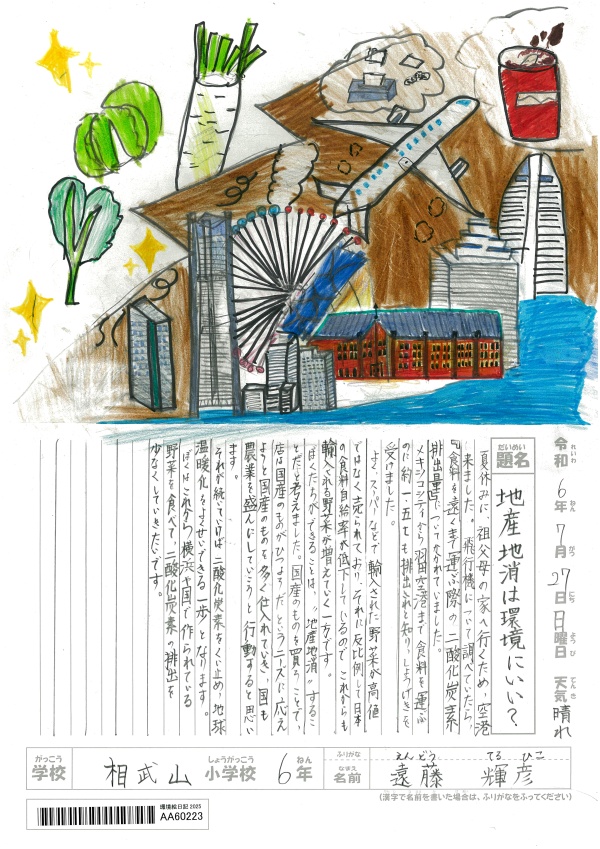 令和6年7月27日日曜日 天気 晴れ
れいわ ねん がつ にち ようび てんき
だいめい
題名 地産地消は環境にいい?
夏休みに、祖父母の家へ行くため、空港
来ました。飛行機について調べていたら、
『食料を遠くまで運ぶ際の二酸化炭素
排出量』についてかかれていました。
メキシコシティから羽田空港まで食料を運ぶ
のに約一・五tも排出されと知り、しょうげきを
受けました。
よく、スーパーなどで、輸入された野菜が高値
ではなく売られており、それに反比例して日本
の食料自給率が低下しているので、これからも
輸入される野菜が増えていく一方です。
ぼくたちができることは、"地産地消"するこ
とだと考えました。国産のものを買うことで、
店は国産のものがひつようだというニーズに応え
ようと国産のものを多く仕入れていき、国も
農業を盛んにしていこうと行動すると思い
ます。
それが続いていけば二酸化炭素をくい止め、地球
温暖化をよくせいできる一歩となります。
ぼくはこれから横浜や国で作られている
野菜を食べて、二酸化炭素の排出を
少なくしていきたいです。
がっこう しょうがっこう ねん ふりがな えんどう てるひこ
学校 相武山 小学校 6年 なまえ 名前 遠藤 輝彦
(漢字で名前を書いた場合は、ふりがなをふってください)
環境絵日記 2025
AA60223